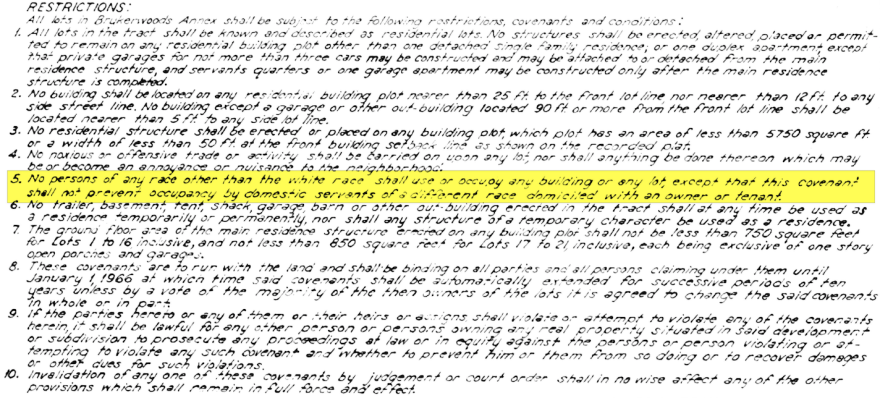 RESTRICTIONS:
All lots in Brykerwoods Annex shall be subject to the following restrictions, covenants and conditions:
1. All lots in the tract shall be known and described as residential lots. No structures shall be erected, altered, placed or permit-
ted to remain on any residential building plot other than one detached single family residence; or one duplex apartment, except
that private garages for not more than three cars may be constructed and may be attached to or detached from the main
residence structure, and servants quarters or one garage apartment may be constructed only after the main residence
structure is completed.
2. No building shall be located on any residential building plot nearer than 25 ft. to the front lot line, nor nearer than 12 ft. to any
side street line. No building except a garage or other out-building located 90 ft or more from the front lot line shall be
located nearer than 5 ft. to any side lot line.
3. No residential structure shall be erected or placed on any building plot, which plot has an area of less than 5750 square ft
or a width of less than 50 ft. at the front building setback line as shown on the recorded plat.
4. No noxious or offensive trade or activity shall be carried on upon any lot, nor shall anything be done thereon which may
be or become an annoyance or nuisance to the neighborhood.
5. No persons of any race other than the white race shall use or occupy any building or any lot, except that this covenant
shall not prevent occupancy by domestic servants of a different race domiciled with an owner or tenant.
6. No trailer, basement, tent, shack, garage barn or other out-building erected in the tract shall at any time be used as
a residence temporarily or permanently, nor shall any structure of a temporary character be used as a residence.
7. The ground floor area of the main residence structure erected on any building plot shall not be less than 750 square feet
for Lots 1 to 16 inclusive, and not less than 850 square feet for Lots 17 to 21, inclusive, each being exclusive of one story
open porches and garages.
8. These covenants are to run with the land and shall be binding on all parties and all persons claiming under them until
January 1, 1966 at which time said covenants shall be automatically extended for successive periods of ten
years unless by a vote of the majority of the then owners of the lots it is agreed to change the said covenants
in whole or in part.
9. If the parties hereto or any of them or their heirs or assigns shall violate or attempt to violate any of the covenants
herein, it shall be lawful for any other person or persons owning any real property situated in said development
or subdivision to prosecute any proceedings at law or in equity against the persons or person violating or at-
tempting to violate any such covenant and whether to prevent him or them from so doing or to recover damages
or other dues for such violations.
10. Invalidation of any one of these covenants by judgement or court order shall in no wise affect any of the other
provisions which shall remain in full force and effect.